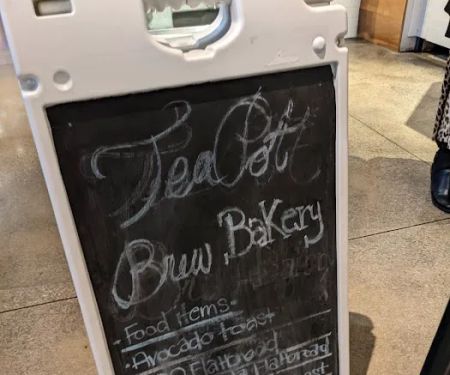 TeaPot
Brew Bakery
-Food items-
-Avocado toast
Flatbread
Flatbread